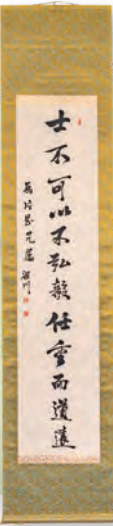 士不可以不弘毅任重而道遠